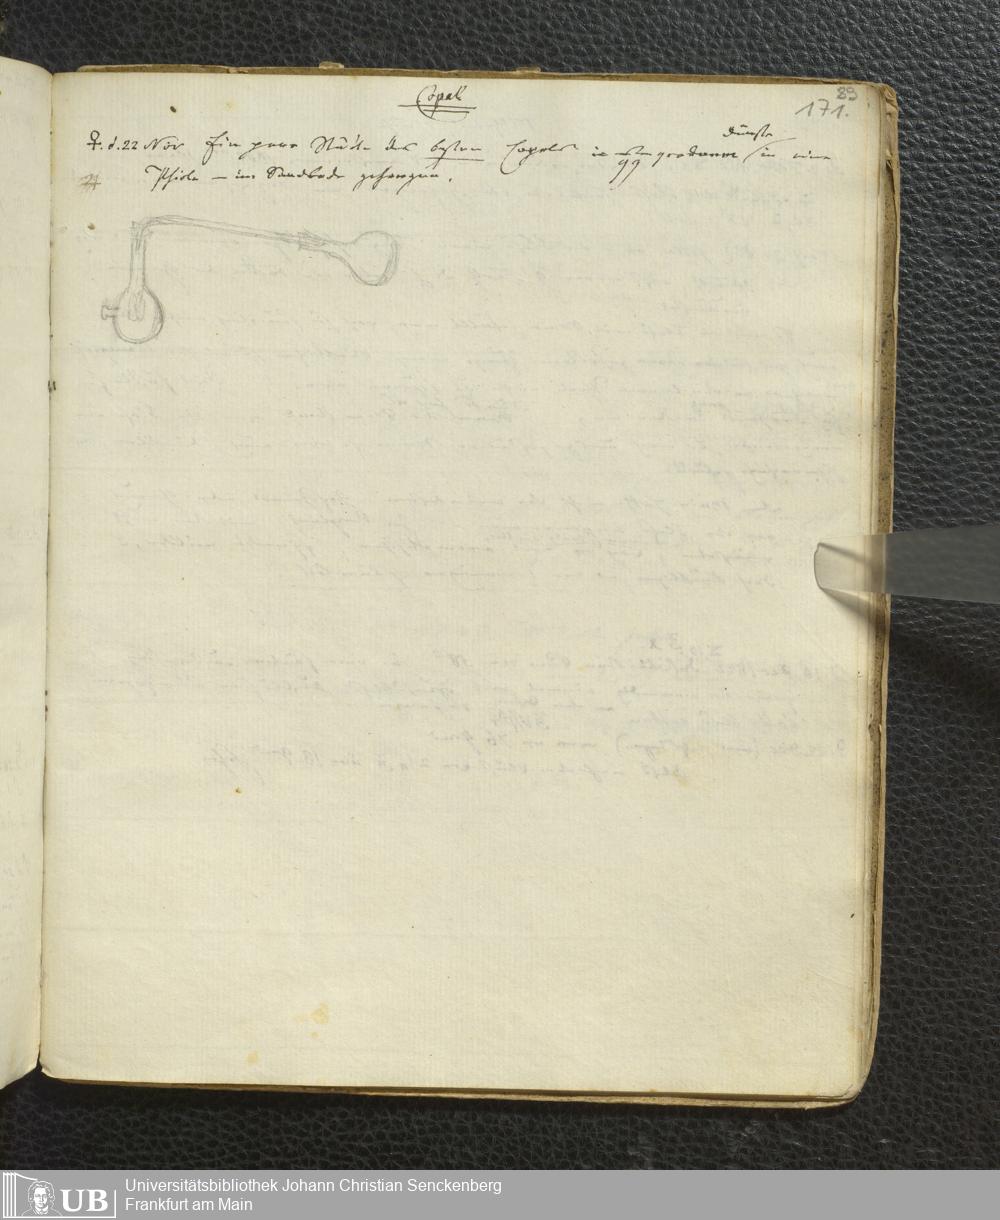 89
171.
Copal
♀. d. 22 Nov Ein paar Stücke des besten Copals in
dünste
in eine
Phiole — im Sandbade gehangen.
UB
Universitätsbibliothek Johann Christian Senckenberg
Frankfurt am Main